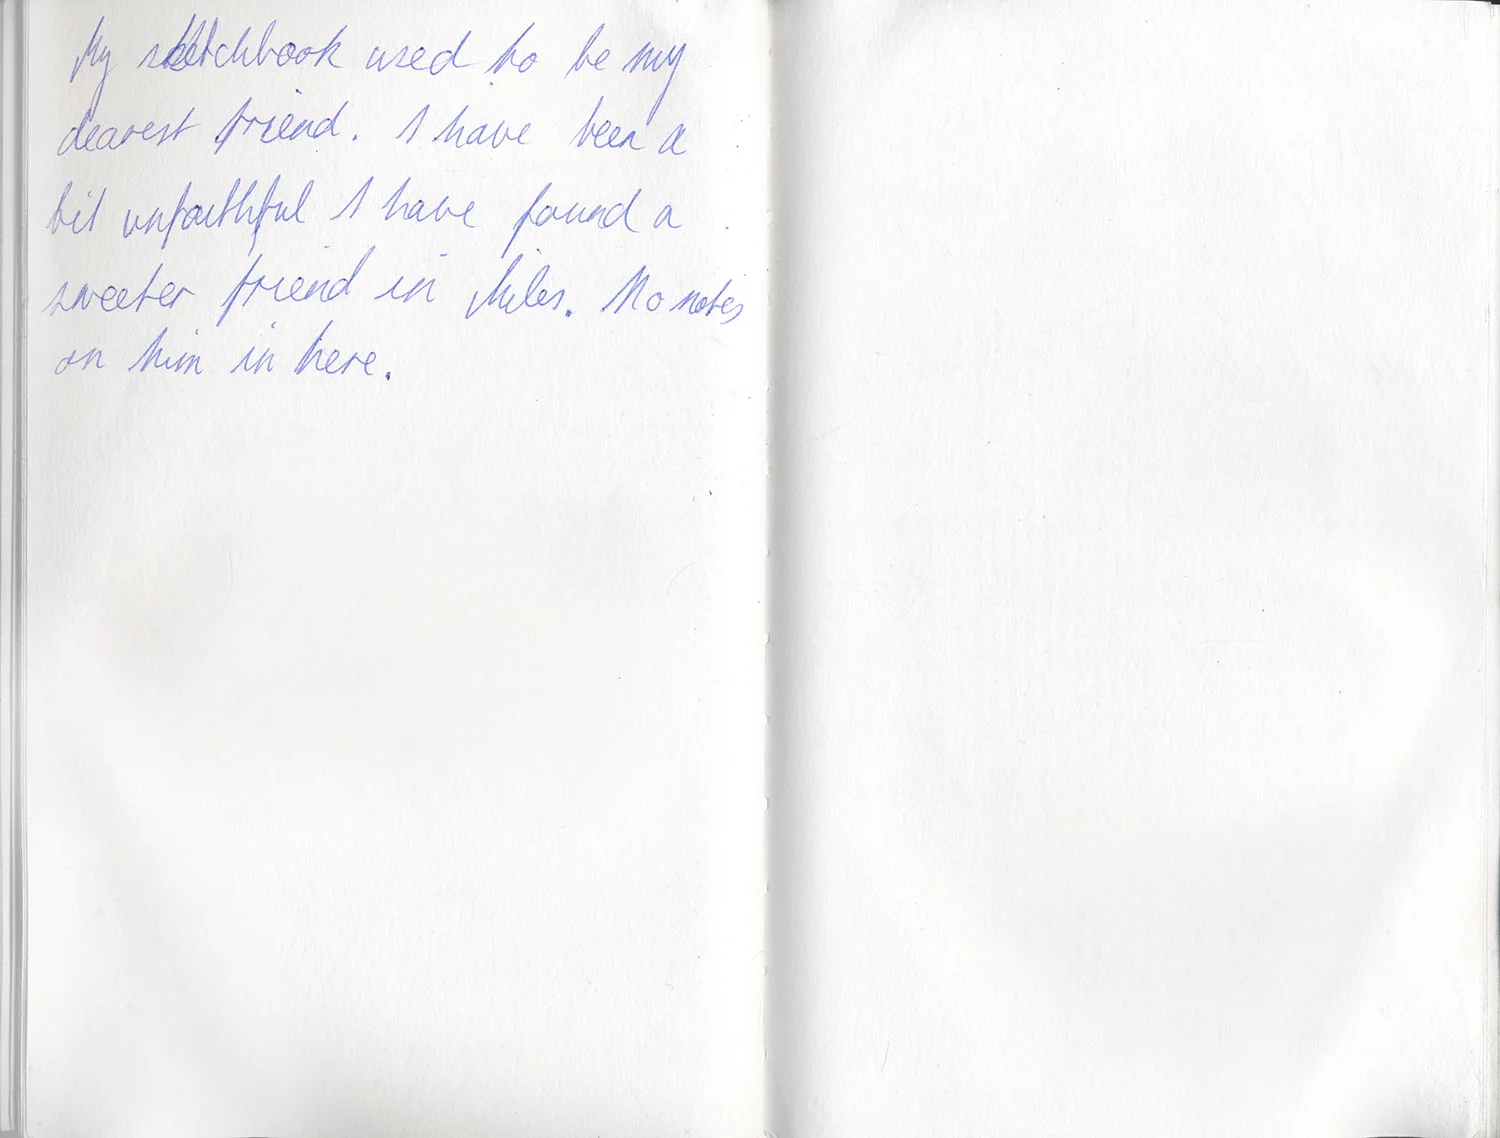 My sketchbook used to be my
dearest friend. I have been a
bit unfaithful I have found a
sweeter friend in Miles. No notes
on him in here.